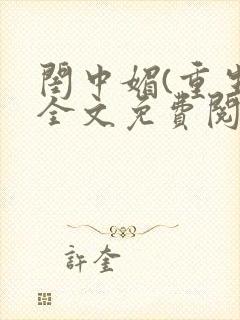 閨中媚(重生
全文免費閱
許奎